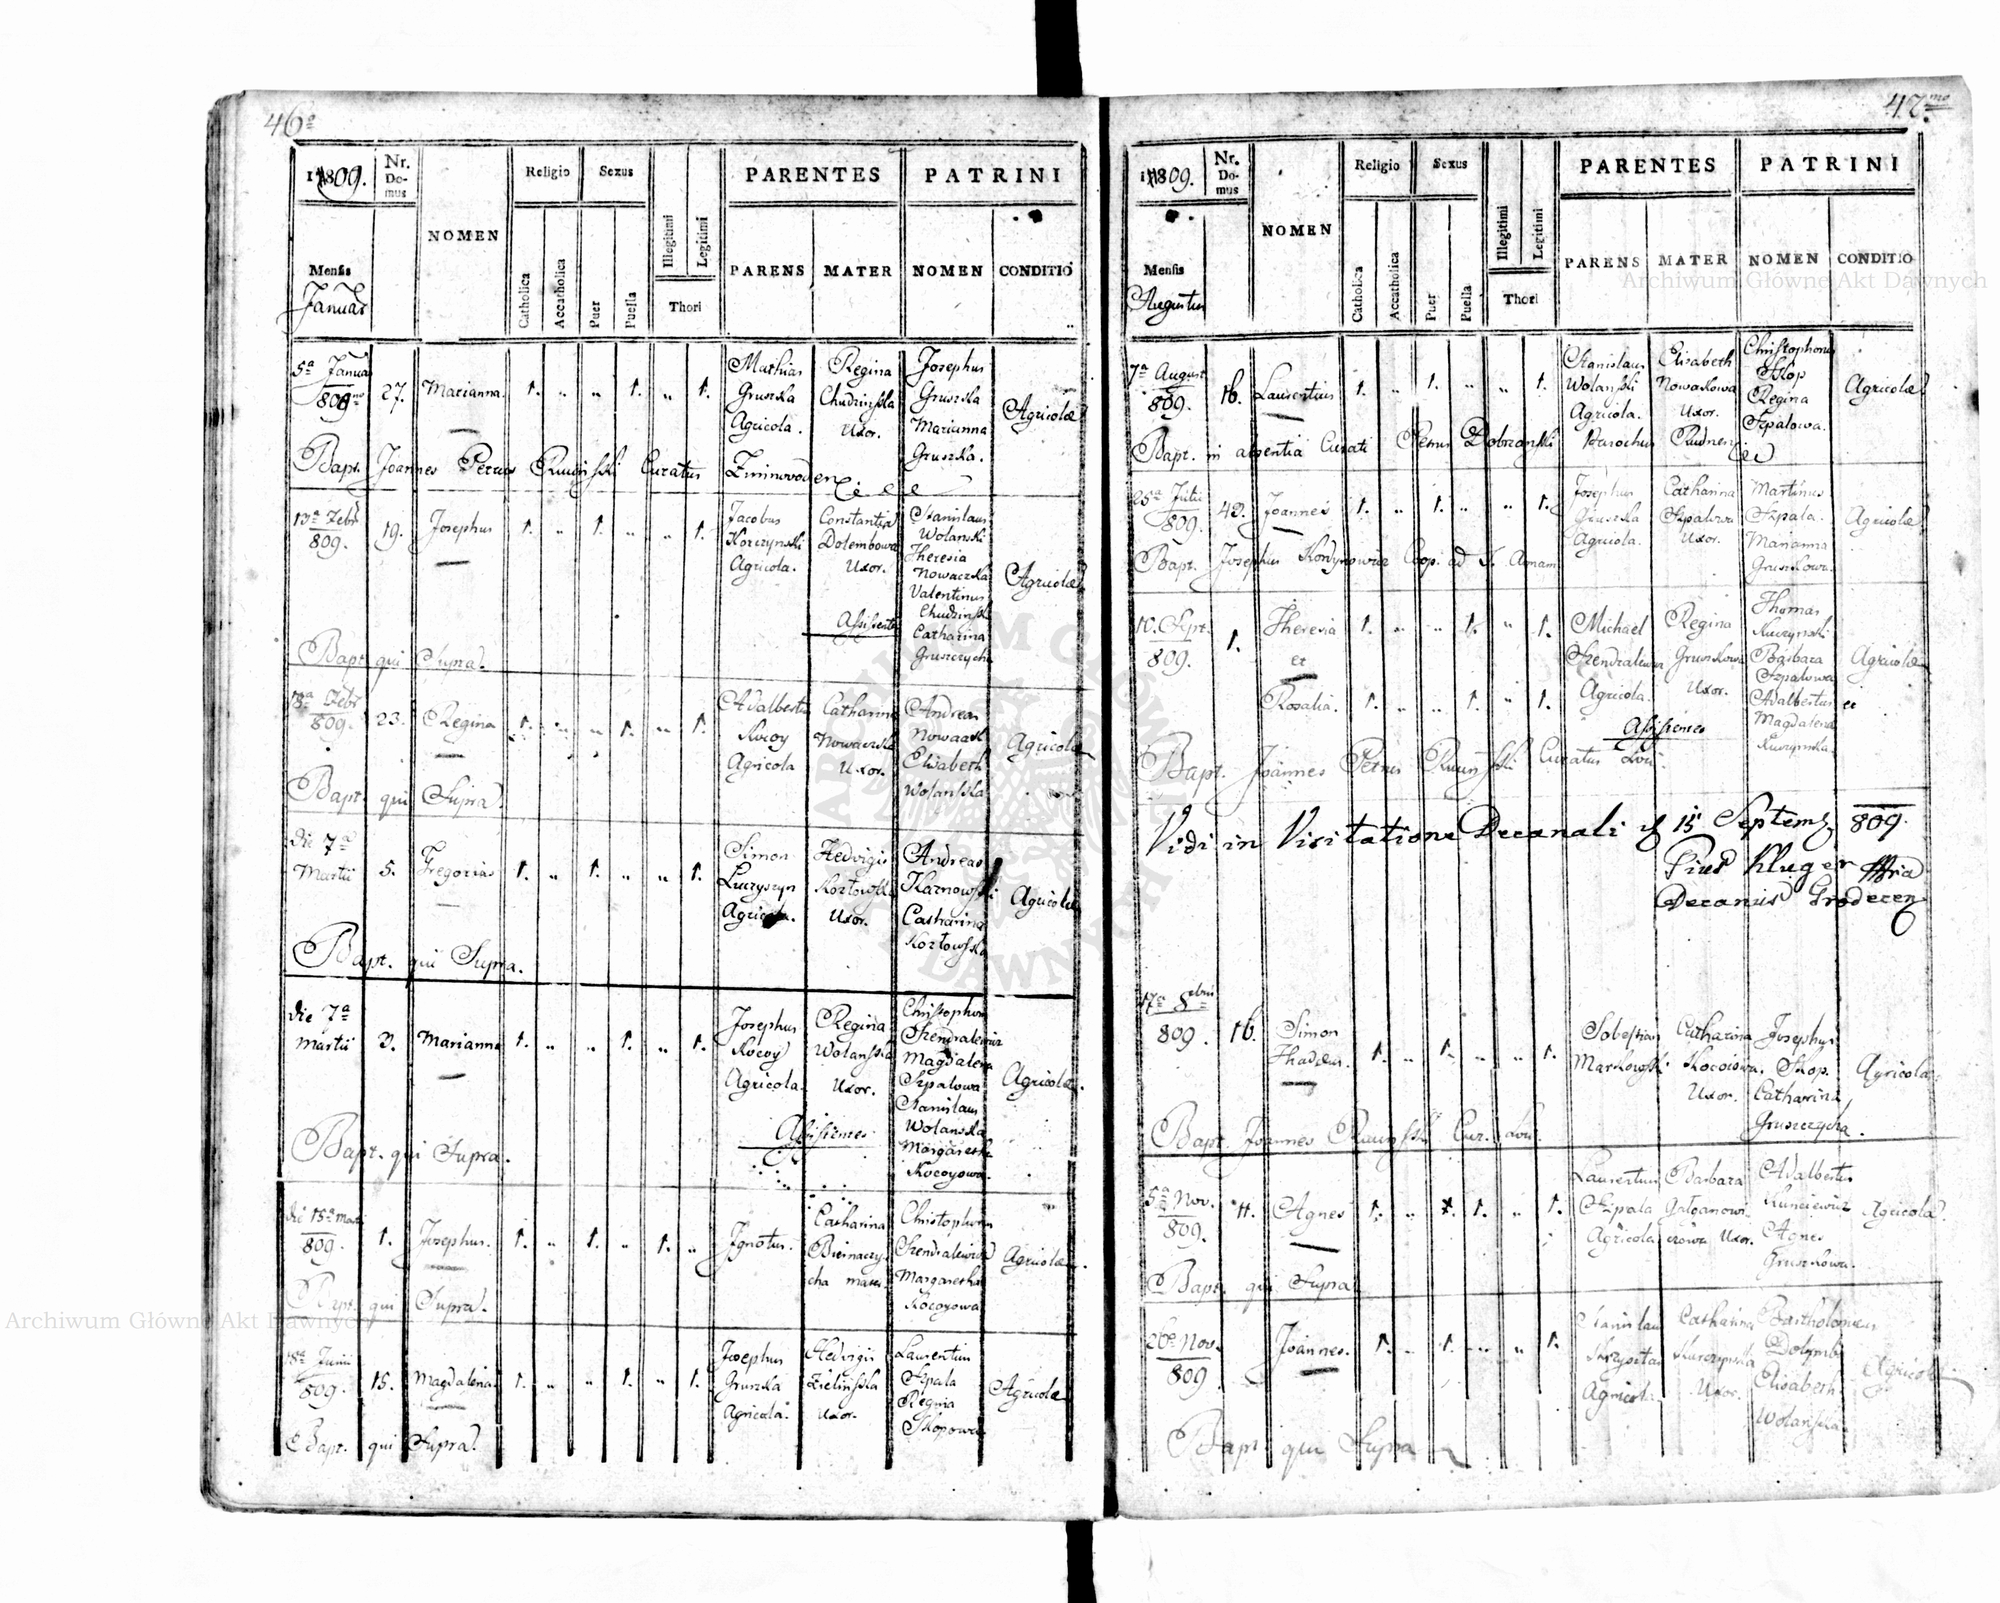 46
1809.
Nr. Domus
NOMEN
Religio
Sexus
PARENTES
PATRINI
Mensis
Januar
Catholica
Accatholica
Puer
Puella
Illegitimi
Legitimi
Thori
PARENS
MATER
NOMEN
CONDITIO
5a Januar 809 27. Marianna 1. „ „ 1. „ 1.
Mathias Gruszka Agricola.
Regina Chudzińska Uxor.
Josephus Gruszka Marianna Gruszka.
Agricolæ
Bapt. Joannes Petrus Curatus
13a Febr 809. 19. Josephus 1. „ 1. „ „ 1.
Jacobus Korczynski Agricola.
Constantia Dolembowa Uxor.
Stanislaus Wolanski Theresia Nowaczka Valentinus Chudzinski Catharina Gruszczycha
Assistentes
Agricolæ
Bapt. qui Supra.
18a Febr 809. 23. Regina 1. „ „ 1. „ 1.
Adalbertus Kocoy Agricola
Catharina Nowaczka Uxor.
Andreas Nowaczk Elisabeth Wolańska
Agricolæ
Bapt. qui Supra.
die 7a Martii 5. Gregorius 1. „ 1. „ „ 1.
Simon Luczyszyn Agricola.
Hedvigis Kozłowska Uxor.
Andreas Karnowski Catharina Kozłowska
Agricolæ
Bapt. qui Supra.
die 7a Martii 3. Marianna 1. „ „ 1. „ 1.
Josephus Kocoy Agricola.
Regina Wolańska Uxor.
Christophorus Szendralewicz Magdalena Szpalowa Stanislaus Wolanska Margaretha Kocoyowa.
Assistentes
Agricolæ.
Bapt. qui Supra.
die 15a Marti 809. 1. Josephus. 1. „ 1. „ 1. „
Ignotus.
Catharina Biernaczycha mater.
Christophorus Szendralewicz Margaretha Kocoyowa
Agricolæ.
Bapt. qui Supra.
18a Junii 809. 15. Magdalena 1. „ „ 1. „ 1.
Josephus Gruszka Agricola.
Hedvigis Zielińska Uxor.
Laurentius Szpala Regina Skopowa
Agricolæ
Bapt. qui Supra.
47mo
1809.
Nr. Domus
NOMEN
Religio
Sexus
PARENTES
PATRINI
Mensis
Augustus
Catholica
Accatholica
Puer
Puella
Illegitimi
Legitimi
Thori
PARENS
MATER
NOMEN
CONDITIO
7a August 809. 16. Laurentius 1. „ 1. „ „ 1.
Stanislaus Wolański Agricola.
Elisabeth Nowakowa Uxor.
Christophorus Skop Regina Szpalowa.
Agricolæ
Bapt. in absentia Curati Petrus Dobrzański Parochus
25a Julii 809. 42. Joannes 1. „ 1. „ „ 1.
Josephus Gruszka Agricola.
Catharina Szpalowa Uxor.
Martinus Szpala. Marianna Gruszkowa.
Agricolæ
Bapt. Josephus Coop. ad S. Annam
10. Sept. 809. 1. Theresia 1. „ „ 1. „ 1.
et
Rosalia. 1. „ „ 1. „ 1.
Michael Szendralewicz Agricola.
Regina Gruszkowa Uxor.
Thomas Kuczynski Barbara Szpalowa Adalbertus et Magdalena Kuczynska.
Assistentes
Agricolæ
Bapt. Joannes Petrus Curatus Loci.
Vidi in Visitatione Decanali 15 Septemb. 809.
Pius Kluger
Decanus Grodecen
17a 8bris 809. 16. Simon Thadæus. 1. „ 1. „ „ 1.
Sebastian Markowski
Catharina Kocoiowa. Uxor.
Josephus Skop. Catharina Gruszczycha.
Agricolæ.
Bapt. Joannes Cur. Loci.
5a Nov. 809. 11. Agnes 1. „ 1. „ 1.
Laurentius Szpala Agricola
Barbara Uxor.
Adalbertus Kunciewicz Agnes Gruszkowa.
Agricolæ.
Bapt. qui Supra
26a Nov. 809 Joannes. 1. „ 1. „ „ 1.
Stanislaus Agricola
Catharina Kurczynska Uxor.
Bartholomæus Dolymb Elisabeth Wolańska.
Agricolæ
Bapt. qui Supra
Archiwum Główne Akt Dawnych
Archiwum Główne Akt Dawnych
ARCHIWUM GŁÓWNE AKT DAWNYCH